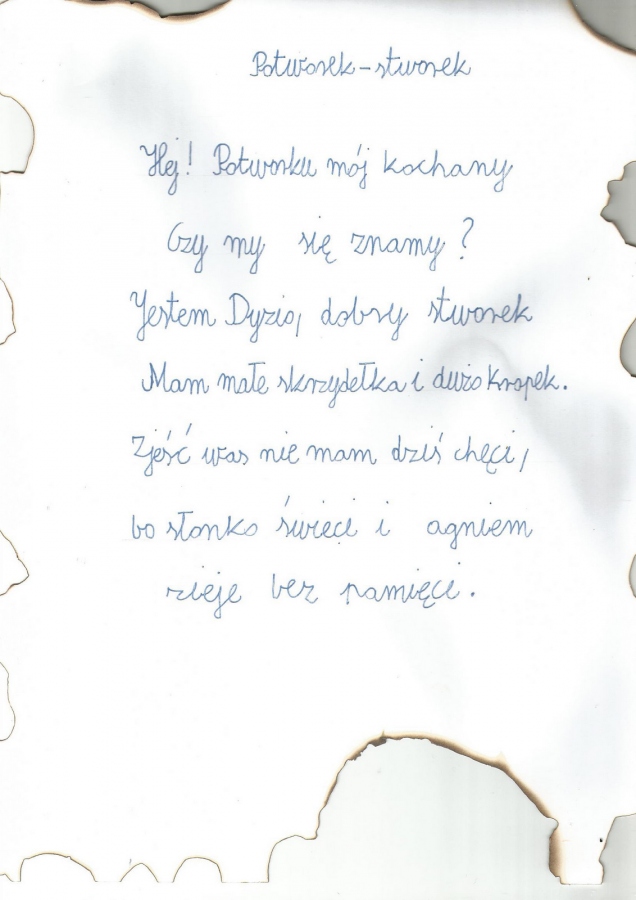 Potworek-stworek
Hej! Potworku mój kochany
Czy my się znamy?
Jestem Dyzio, dobry stworek
Mam małe skrzydełka i dużo kropek.
Zjeść was nie mam dziś chęci,
bo słonko świeci i agniem
zieje bez pamięci.